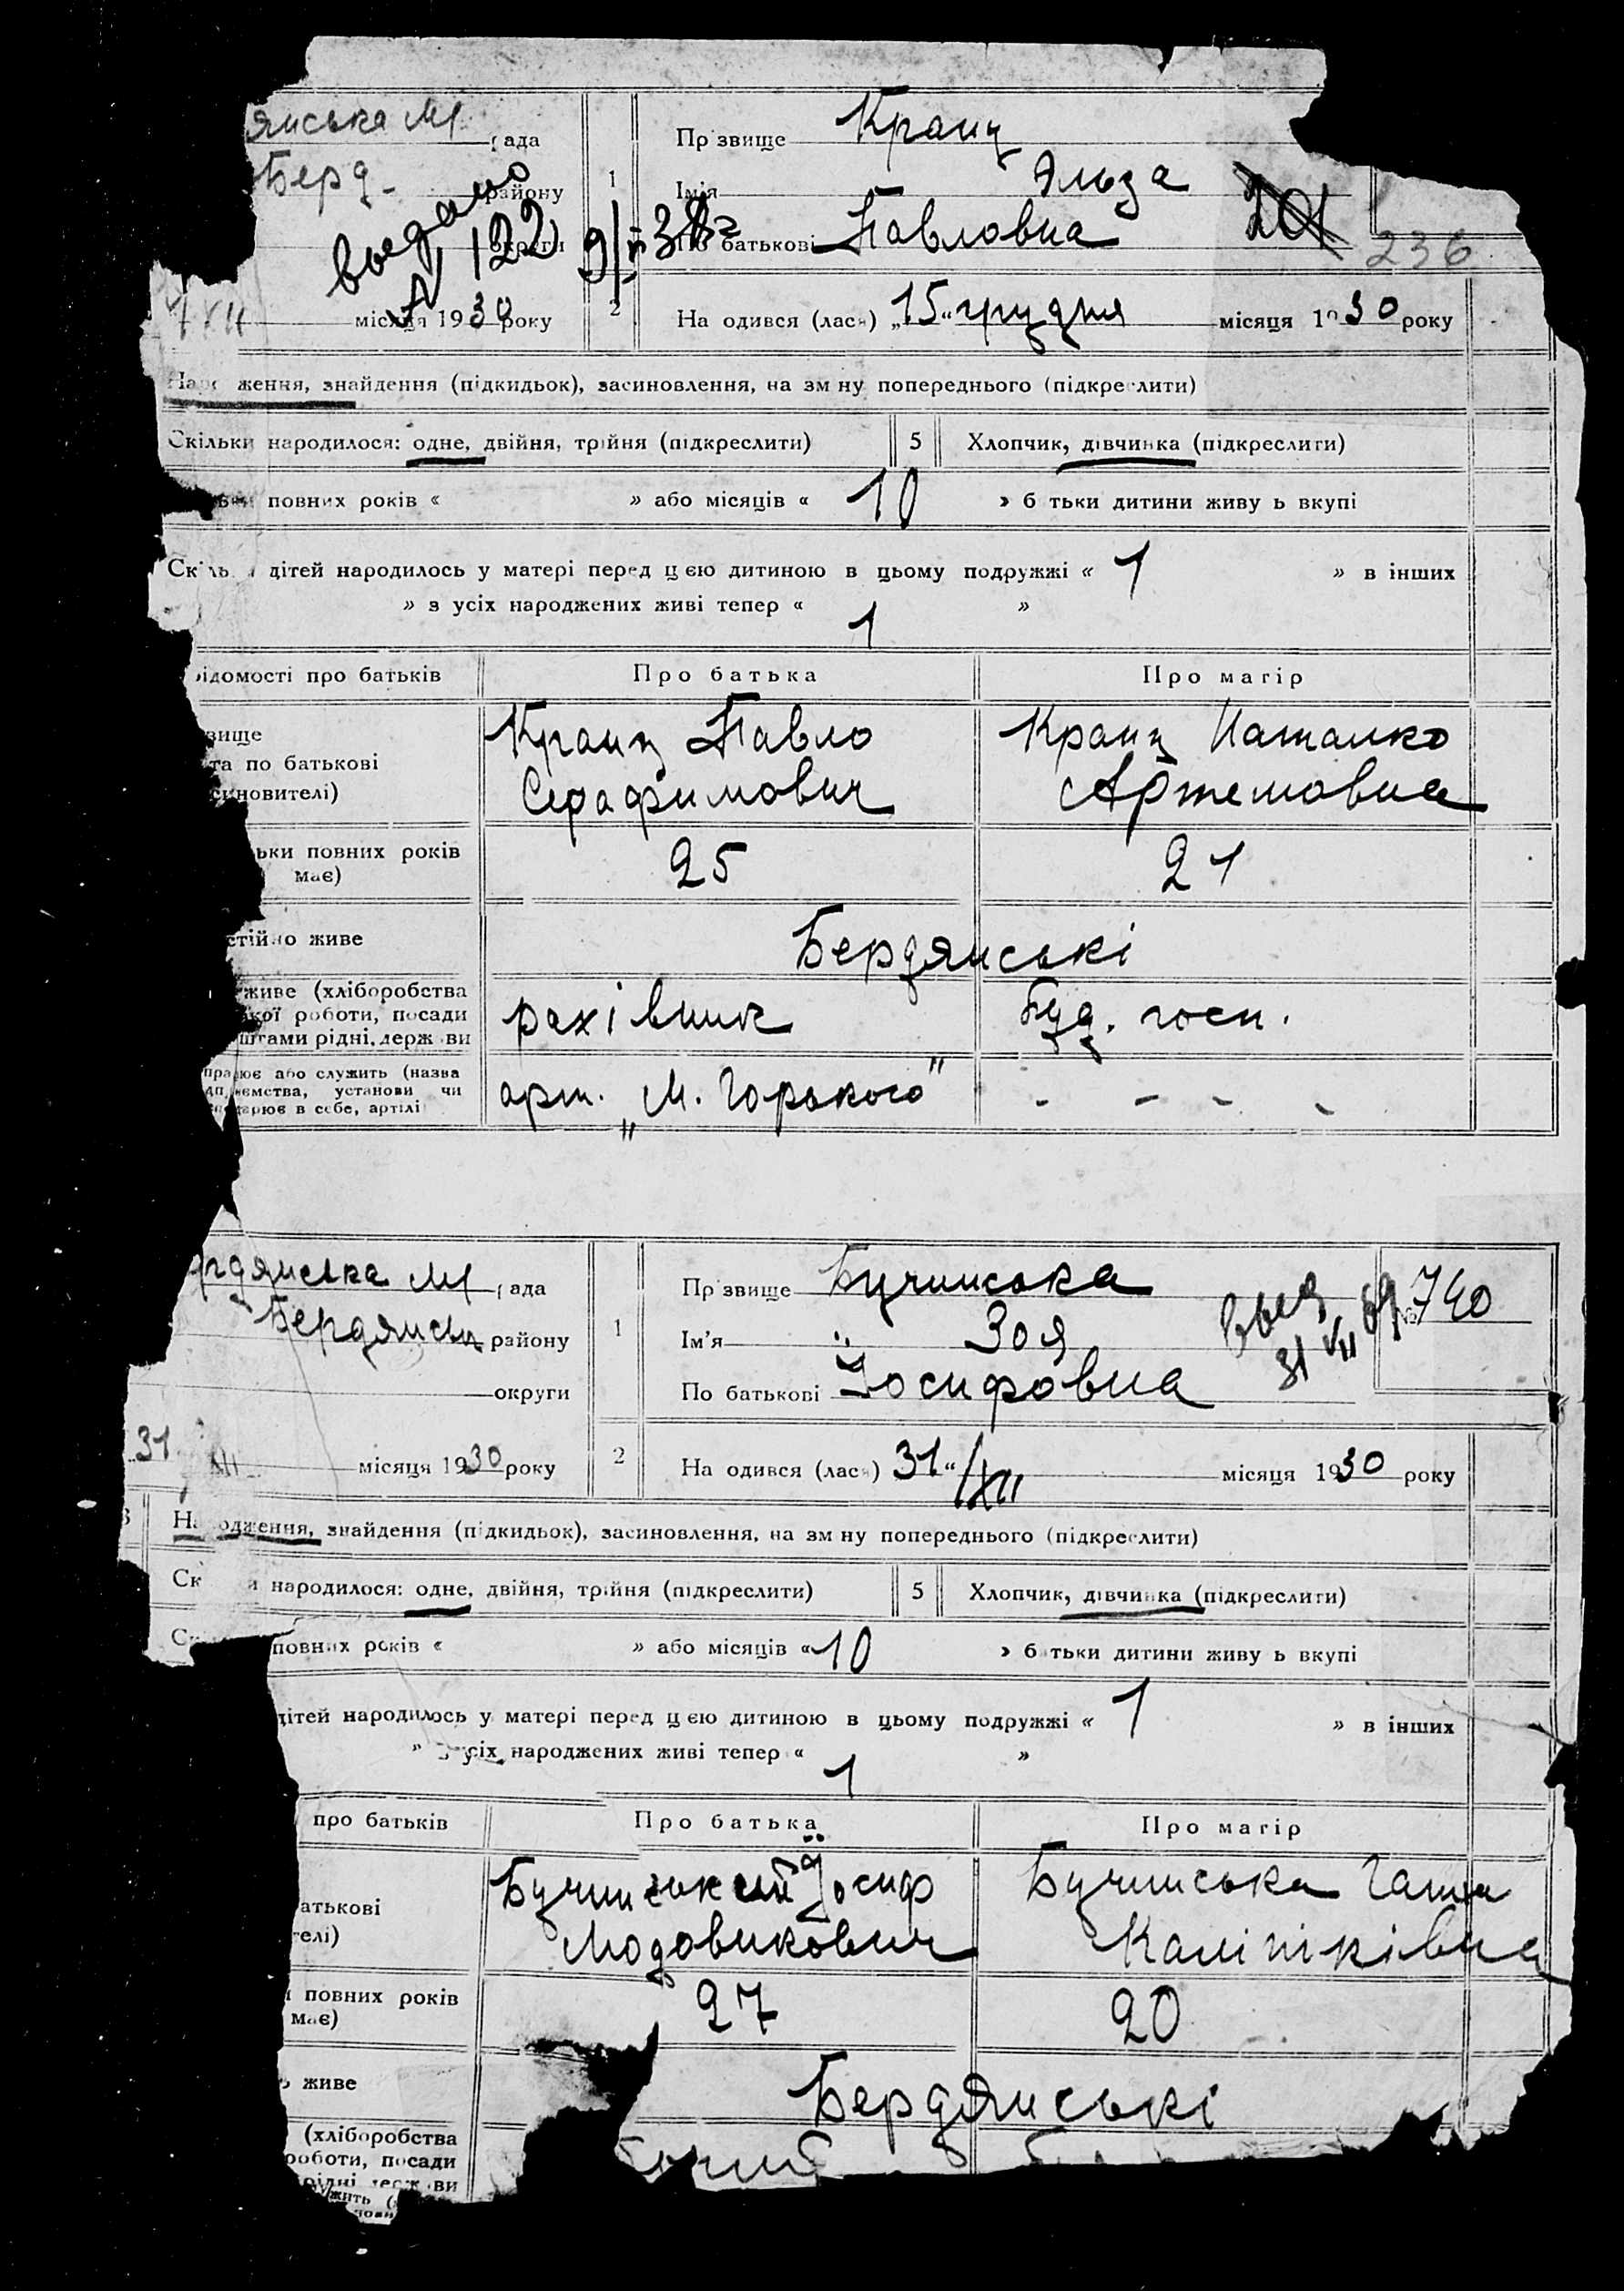 янська М/
Берд.
рада
району
округи
выдано
№ 122 9/II 38г
1
Прізвище Кранц
Ім'я Эльза
По батькові Павловна
201
236
7 XII місяця 1930 року
2
Народився (лася) „15“ грудня місяця 1930 року
Народження, знайдення (підкидьок), засиновлення, на зміну попереднього (підкреслити)
Скільки народилося: одне, двійня, трійня (підкреслити) 5 Хлопчик, дівчинка (підкреслити)
повних років « » або місяців « 10 » батьки дитини живуть вкупі
Скільки дітей народилось у матері перед цією дитиною в цьому подружжі « 1 » в інших
» з усіх народжених живі тепер « 1 »
ідомості про батьків Про батька Про матір
звище
та по батькові
синовителі)
Кранц Павло
Серафимович
Кранц Наталка
Артемовна
ьки повних років
має) 25 21
стійно живе Бердянські
живе (хліборобства
кої роботи, посади
штами рідні, держави
рахівник буд. госп.
працює або служить (назва
ємства, установи чи
в себе, артілі
арт. „М. Горького" - - - -
рдянська М/ рада
Бердянськ району
округи
1
Прізвище Бучинська
Ім'я Зоя
По батькові Йосифовна
выд
31 VII 69
№ 740
31 XII місяця 1930 року
2
Народився (лася) 31 “/XII місяця 1930 року
3 Народження, знайдення (підкидьок), засиновлення, на зміну попереднього (підкреслити)
Скільки народилося: одне, двійня, трійня (підкреслити) 5 Хлопчик, дівчинка (підкреслити)
повних років « » або місяців « 10 » батьки дитини живуть вкупі
дітей народилось у матері перед цією дитиною в цьому подружжі « 1 » в інших
» з усіх народжених живі тепер « 1 »
про батьків Про батька Про матір
атькові
телі)
Бучинський Йосиф
Людовикович
Бучинська Ганна
повних років
має) 27 20
живе Бердянські
(хліборобства
роботи, посади
рідні держави
жить